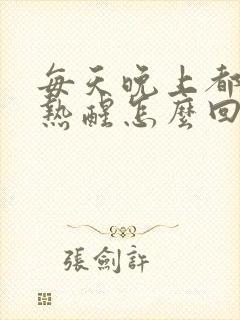 每天晚上都
熱醒怎麼回
張劍許